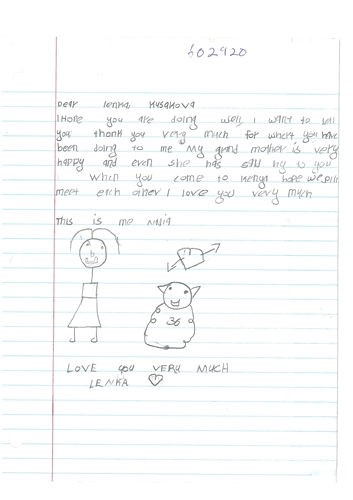 602920
Dear lenka Kusakova
I Hope you are doing well, I want to tell
you thank you very much for what you have
been doing to me My grand mother is very
happy and even she has said hy to you
When you come to kenya hope we will
meet each other I love you very much
This is me
36
LOVE you VERY MUCH
LENKA